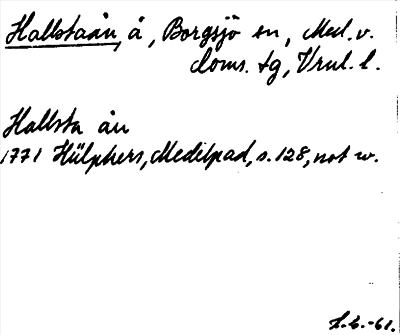 Hallstaån, å, Borgsjö sn, Med. v.
doms. tg, Vnl. l.
Hallsta ån
1771 Hülphers, Medelpad, s. 128, not w.